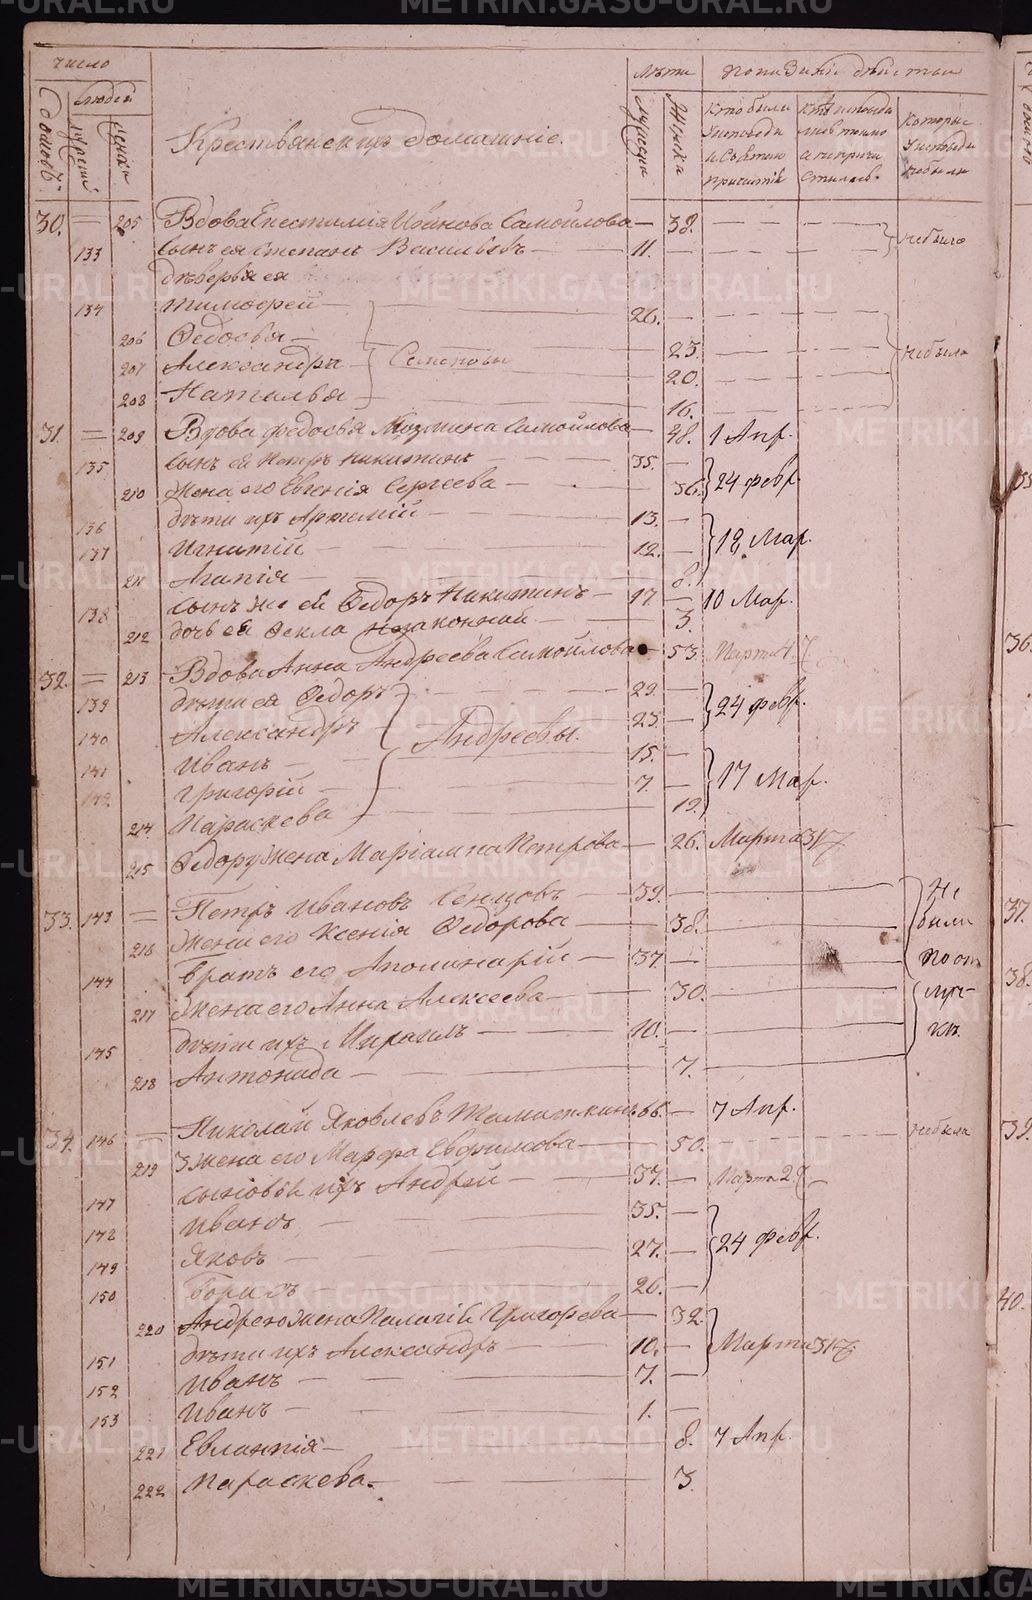 число
Людей
Лѣта
Показаніе дѣйствія
Домовъ
Мужескъ
Женскъ
Крестьяне и ихъ домашніе.
Мужеска
Женска
Кто были
у исповѣди
и Св. Таинъ
причастія
Которые
у исповѣди
не были
30. 205 Вдова Епестимія Иванова Самойлова 38.
133 сынъ ея Степанъ Васильевъ 11. не были
деверья ея
134 Тимофей 26.
206 Федосья 23.
207 Александра Семеновы 20. не были
208 Наталья 16.
31. 209 Вдова Федосья Козмина Самойлова 48. 1 Апр.
135 сынъ ея Петръ Никитинъ 35.
210 жена его Евгенія Сергеева 36. 24 февр.
136 дѣти ихъ Артемій 13.
137 Игнатій 12. 12 Мар.
211 Агапія 8.
138 сынъ же ея Федоръ Никитинъ 17 10 Мар.
212 дочь ея Фекла незаконная 3.
32. 213 Вдова Анна Андреева Самойлова 53. Марта 4.
139 дѣти ея Федоръ 29.
140 Александръ 23. 24 февр.
Андреевы.
141 Иванъ 15.
142 Григорій 7. 17 Мар.
214 Параскева 19.
215 Федору жена Маріамна Петрова 26. Марта 31
33. 143 Петръ Ивановъ Сенцовъ 39. Не
216 жена его Ксенія Федорова 38. были
144 братъ его Аполинарій 37. по от
217 жена его Анна Алексеева 30. луч-
145 дѣти ихъ Михаилъ 10. кѣ.
218 Антонида 7.
34. 146 Николай Яковлевъ 66. 7 Апр.
219 жена его Марфа Евфимова 50. не была
147 сыновья ихъ Андрей 37. Марта 2
148 Иванъ 35.
149 Яковъ 27. 24 февр.
150 Борисъ 26.
220 Андрею жена Палагія Григорьева 32.
151 дѣти ихъ Александръ 10. Марта 31
152 Иванъ 7.
153 Иванъ 1.
221 Евлампія 8. 7 Апр.
222 Параскева. 3.
35
36.
37.
38.
39.
40.
METRIKI.GASO-URAL.RU